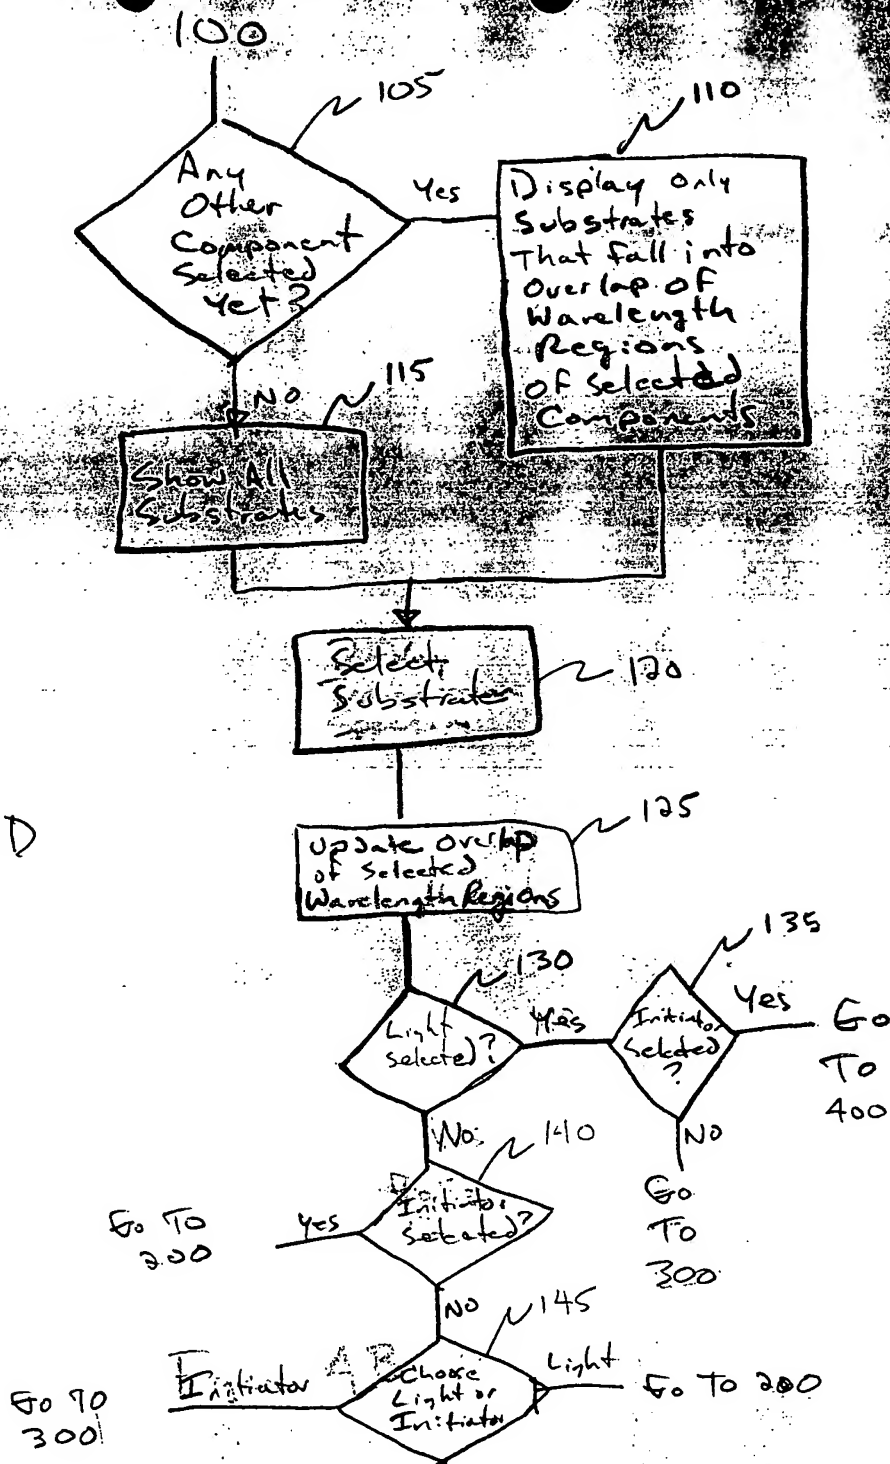 100
105
Any
Other
Component
Selected
Yet?
Yes
110
Display Only
Substrates
That fall into
Overlap of
Wavelength
Regions
of Selected
Components
NO
115
Show All
Substrates
Select
Substrate
120
D
125
Update Overlap
of Selected
Wavelength Regions
130
Light
Selected?
Yes
135
Initiator
Selected
?
Yes
Go
To
400
NO
Go
To
300
No
140
Initiator
Selected?
Yes
Go To
200
NO
145
Choose
Light or
Initiator
Initiator
Go To
300
Light
Go To 200